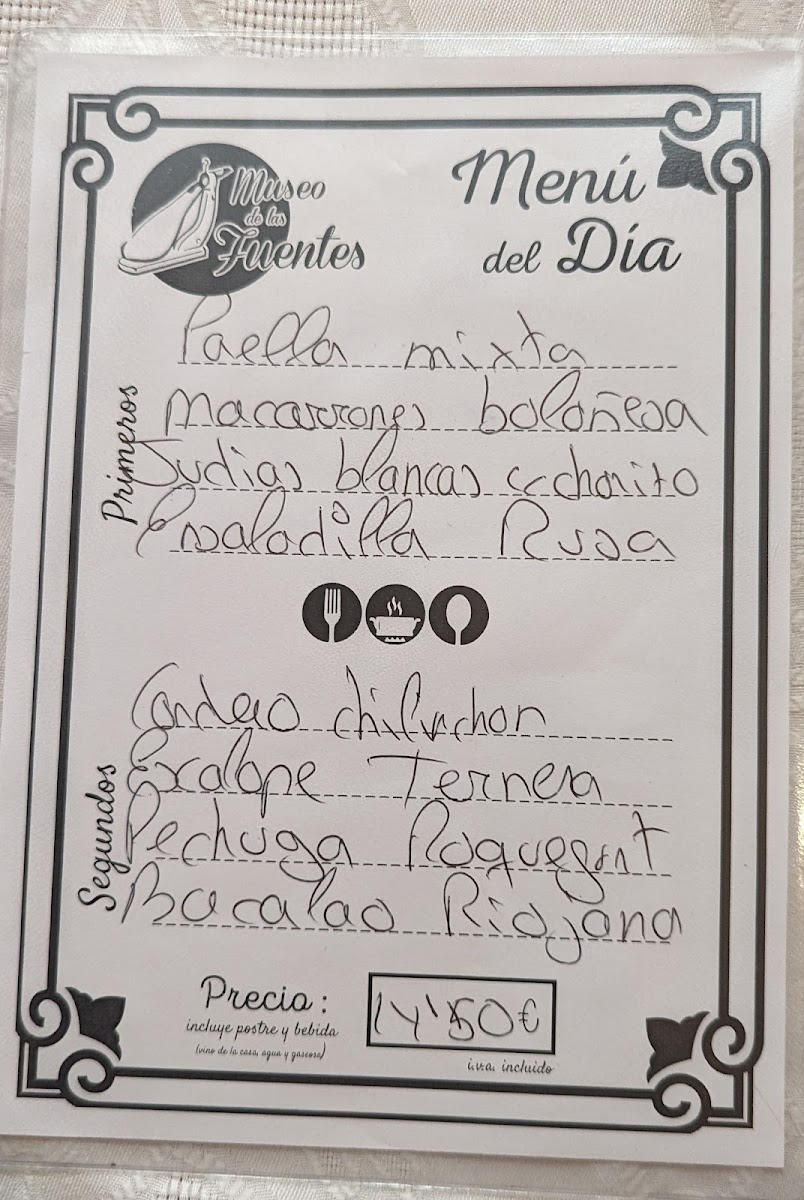 Museo
de las
Fuentes
Menú
del Día
Primeros
Paella mixta
Macarrones boloñesa
Judias blancas cchorito
Ensaladilla Rusa
Segundos
Cordero chilinchon
Escalope Ternera
Pechuga Roquefort
Bacalao Riojana
Precio:
incluye postre y bebida
(vino de la casa, agua y gaseosa)
14'50€
i.v.a. incluido